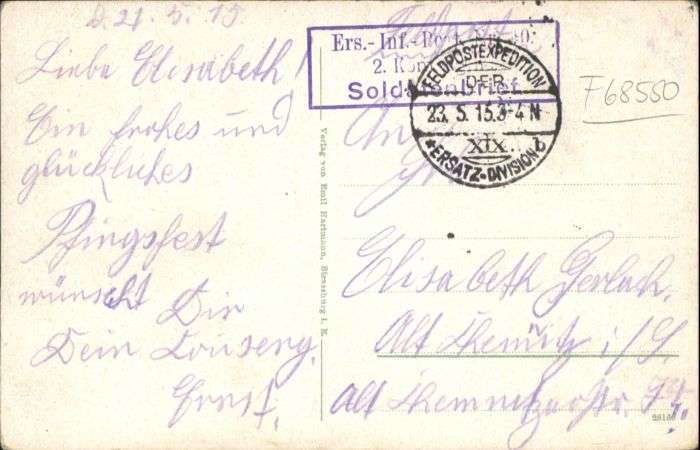 D. 21. 5. 15
Liebe Elisabeth!
Ein frohes und
glückliches
Pfingsfest
wünscht Dir
Dein
Ernst.
Verlag von Emil Hartmann, Strassburg i. E.
Feldpost
Ers.-Inf.-
2.
Soldatenbrief
FELDPOSTEXPEDITION
DER
23. 5. 15. 3-4 N
XIX. b
*ERSATZ-DIVISION
F68550
Elisabeth Gerlach.
Alt Chemnitz i/S.
Alt Chemnitzerstr.